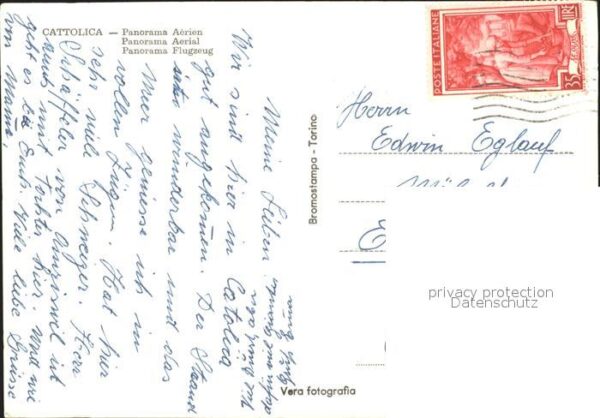 CATTOLICA — Panorama Aérien
Panorama Aerial
Panorama Flugzeug
Meine Lieben
Wir sind hier in Catolica
gut angekommen. Der Strand
ist wunderbar und das
Meer geniesse ich in
vollen Zügen. Hat hier
sehr viele Schweizer. Herr
Schäffeler von ist
auch mit Tochter hier. Und wie
geht es bei Euch. Viele liebe Grüsse
von Mama.
Bromostampa - Torino
Vera fotografia
POSTE ITALIANE
35 LIRE
Herrn
Edwin Eglauf
privacy protection
Datenschutz